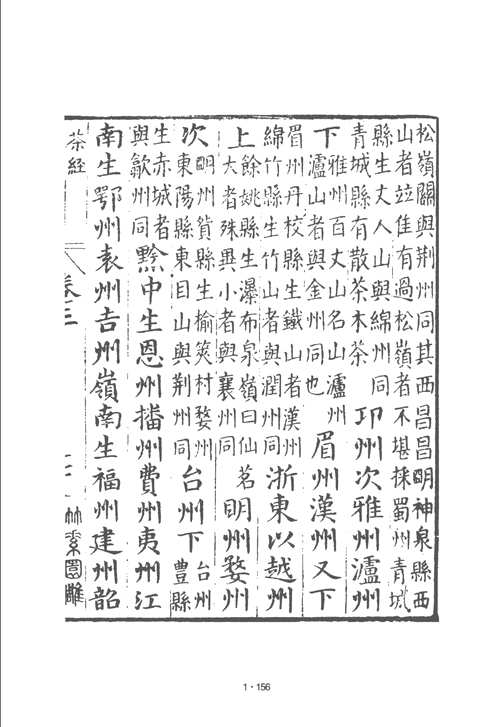 松嶺關與荆州同其西昌昌明神泉縣西
山者竝佳有過松嶺者不堪採蜀州青城
縣生丈人山與綿州同
青城縣有散茶木茶
卭州次雅州瀘州
下
雅州百丈山名山瀘州
瀘山者與金州同也
眉州漢州又下
眉州丹校縣生鐵山者漢州
綿竹縣生竹山者與潤州同
浙東以越州
上
餘姚縣生瀑布泉嶺曰仙茗
大者殊異小者與襄州同
明州婺州
次
明州貨縣生榆筴村婺州
東陽縣東目山與荆州同
台州下
台州
豐縣
生赤城者
與歙州同
黔中生恩州播州費州夷州江
南生鄂州袁州吉州嶺南生福州建州韶
茶経
卷三
竹素園雕
1·156